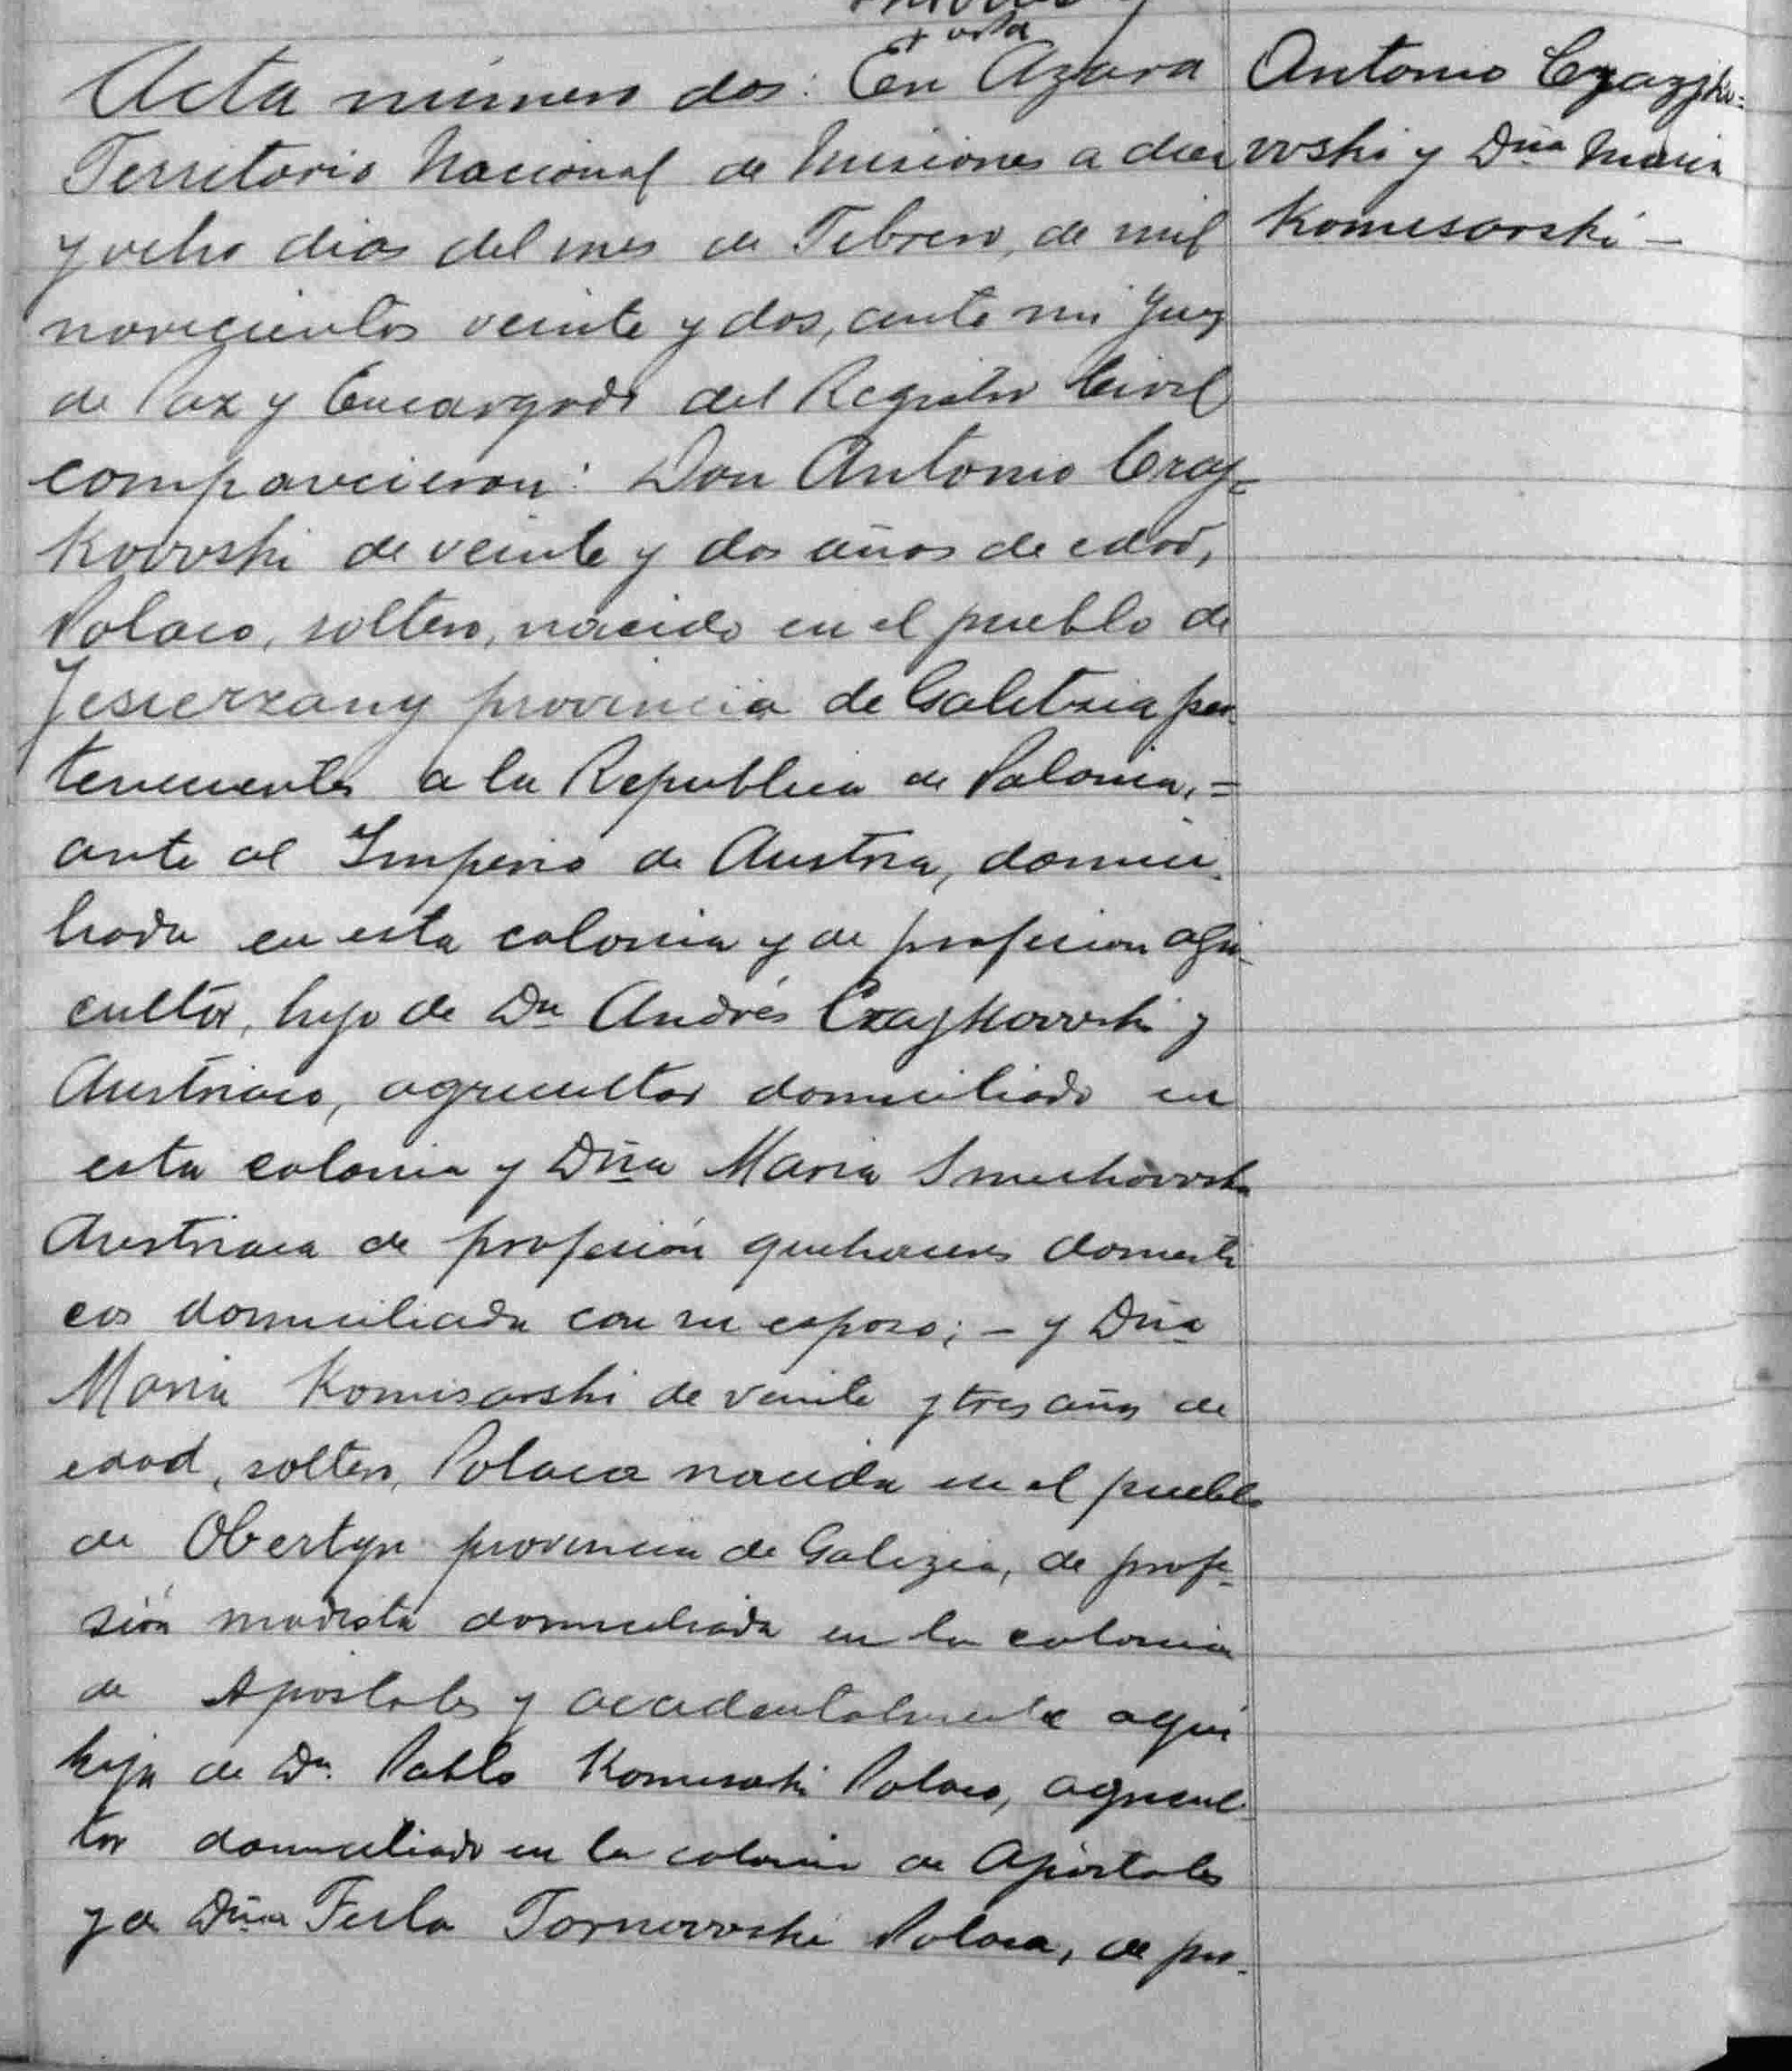 Acta número dos: En Azara
Territorio Nacional de Misiones a diez
y ocho dias del mes de Febrero, de mil
novecientos veinte y dos, ante mi Juez
de Paz y Encargado del Registro Civil
comparecieron: Don Antonio Czaj=
kowski de veinte y dos años de edad,
Polaco, soltero, nacido en el pueblo de
Jesierzany provincia de Galitzia per-
teneciente a la Republica de Polonia, =
ante al Imperio de Austria, domici-
liado en esta colonia y de profesion agri-
cultor, hijo de Dn Andrés Czajkowski y
Austriaco, agricultor domiciliado en
esta colonia y Dña Maria
Austriaca de profesión quehaceres domesti
cos domiciliada con su esposo; - y Dña
Maria Komisarski de veinte y tres años de
edad, soltera, Polaca nacida en el pueblo
de Obertyn provincia de Galizia, de profe-
sión modista domiciliada en la colonia
de Apostoles y accidentalmente aquí
hija de Dn. Pablo Komisarski Polaco, agricul-
tor domiciliado en la colonia de Apostoles
y de Dña Fesla Tornowski Polaca, de pro-
Antonio Czajko=
wski y Dña Maria
Komisarski -